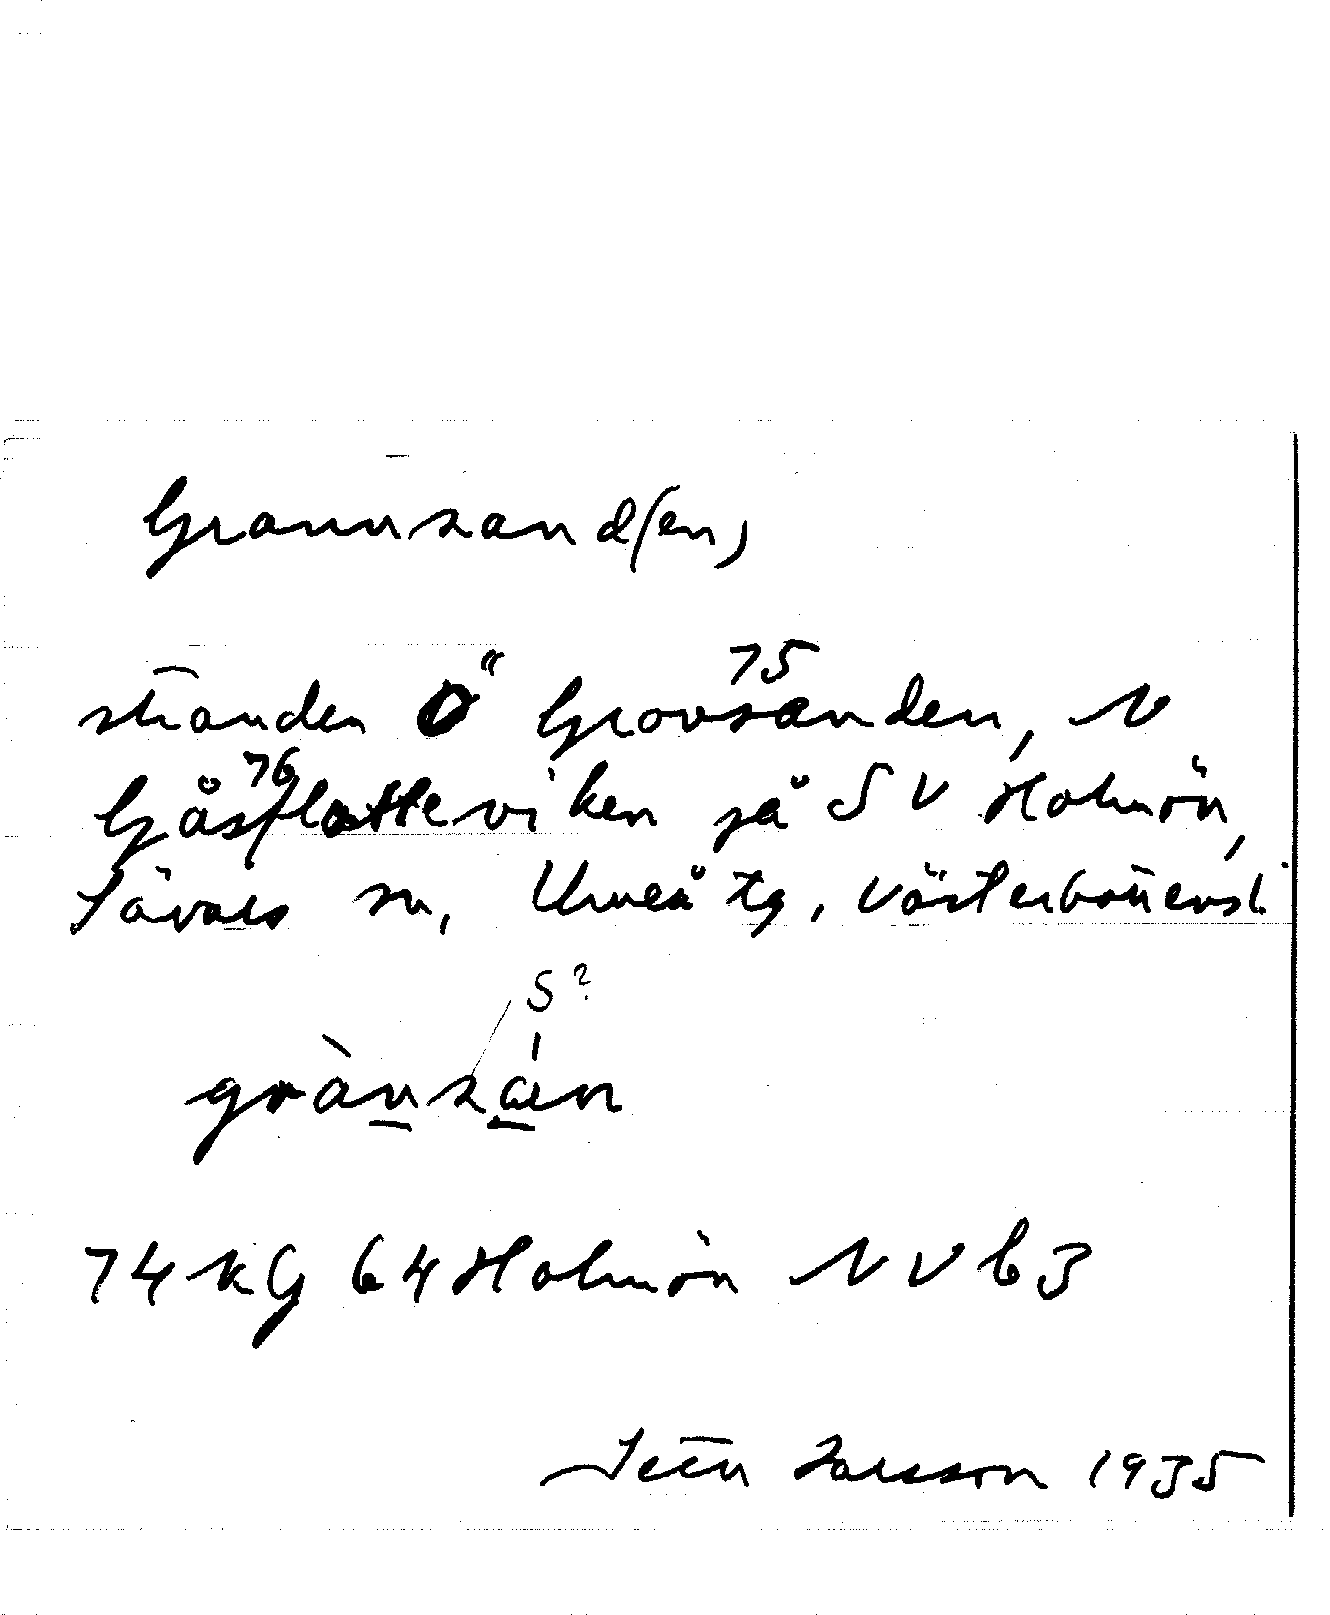 Grannsand(en)
stranden Ö Grovsanden, N
75
Gåsflatteviken på SV Holmön,
76
Sävars sn, Umeå tg, Västerbottensl.
S?
grànsán
74 KG 64 Holmön NV b3
Sten Larsson 1935